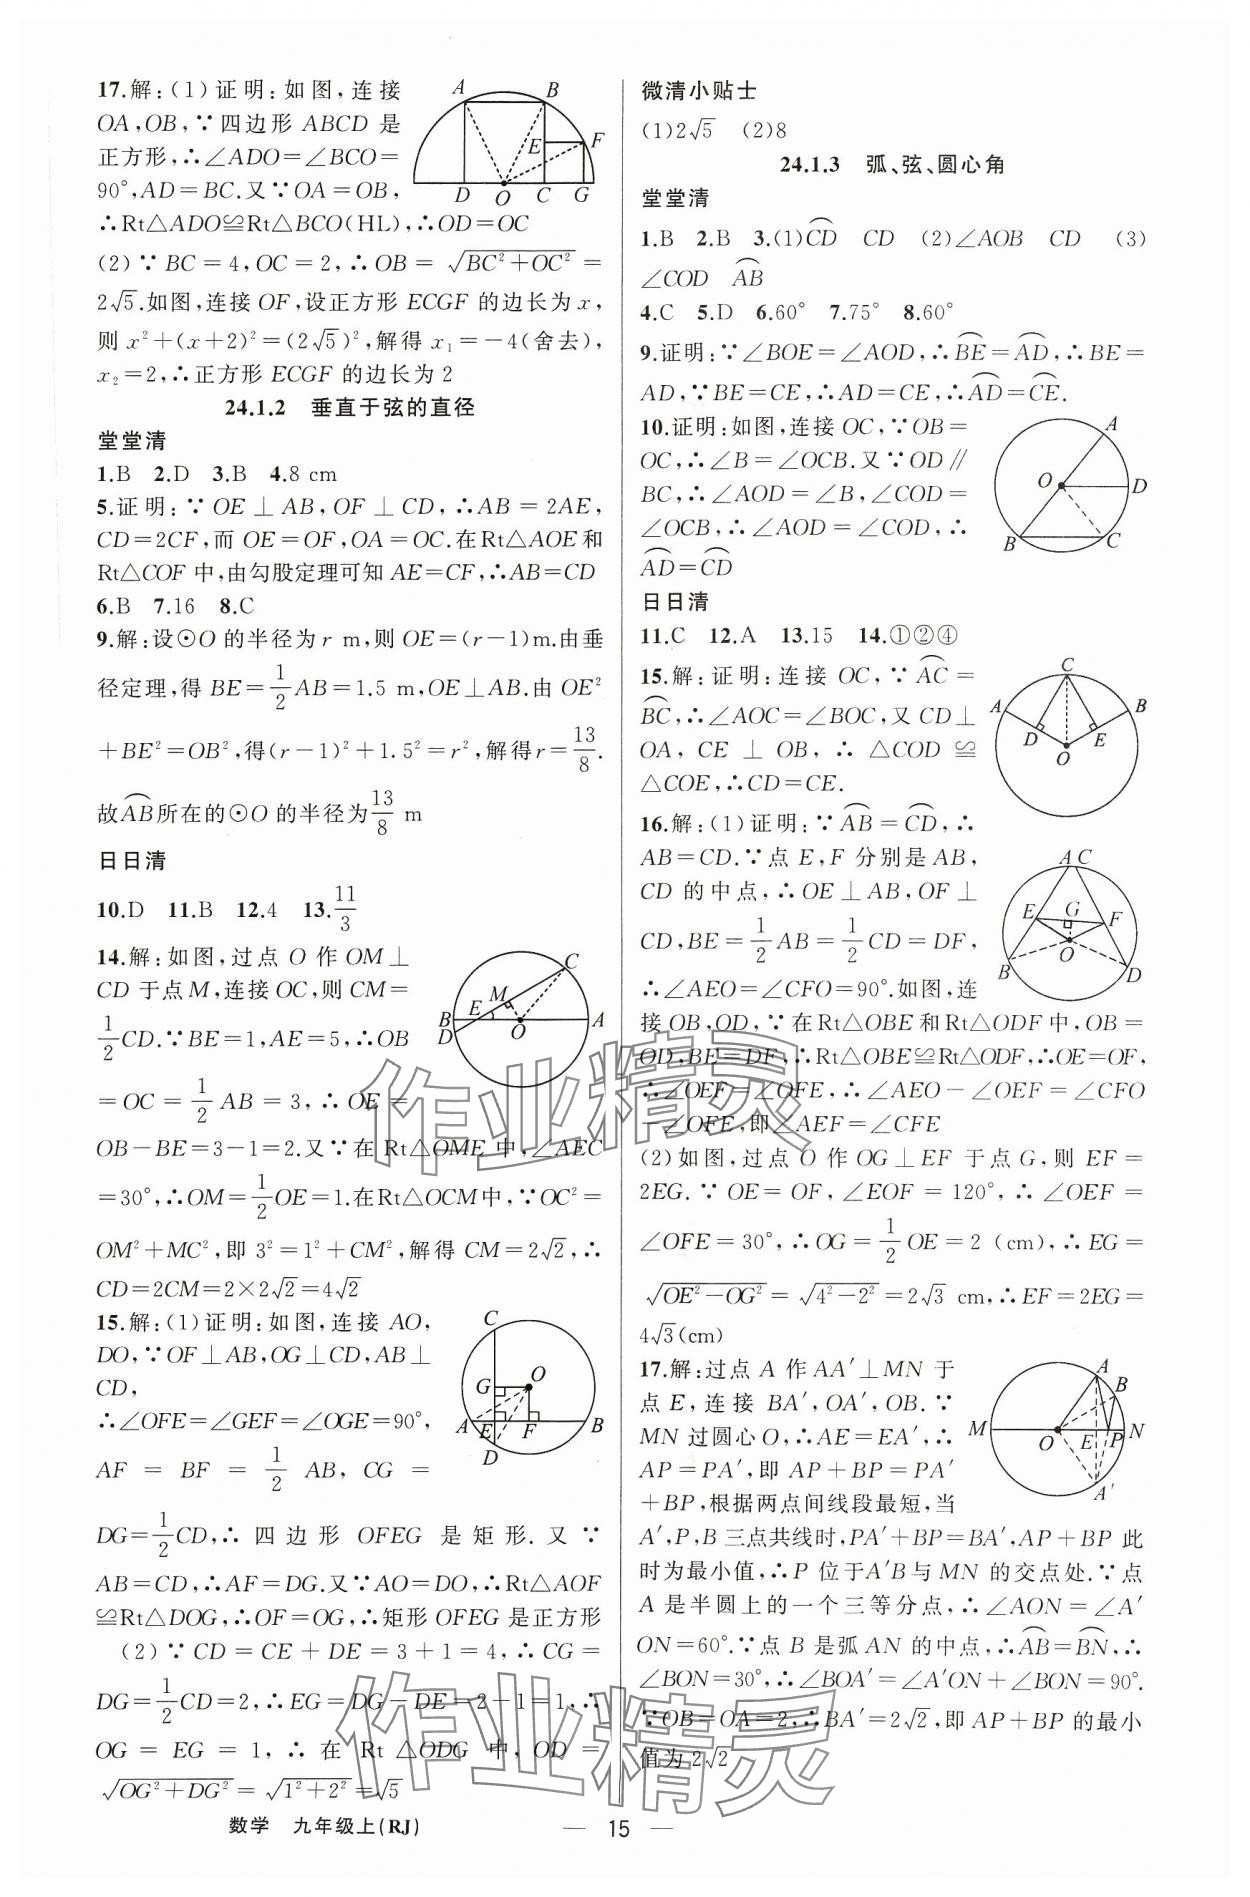 17.解:(1)证明:如图,连接
OA,OB,∵四边形 ABCD 是
正方形,∴∠ADO=∠BCO=
90°,AD=BC.又∵OA=OB,
∴Rt△ADO≌Rt△BCO(HL),∴OD=OC
(2)∵BC=4,OC=2,∴OB=√(BC²+OC²)=
2√5.如图,连接 OF,设正方形 ECGF 的边长为 x,
则 x²+(x+2)²=(2√5)²,解得 x₁=-4(舍去),
x₂=2,∴正方形 ECGF 的边长为 2
A B E F D O C G
24.1.2 垂直于弦的直径
堂堂清
1.B 2.D 3.B 4.8 cm
5.证明:∵OE⊥AB,OF⊥CD,∴AB=2AE,
CD=2CF,而 OE=OF,OA=OC.在Rt△AOE和
Rt△COF 中,由勾股定理可知 AE=CF,∴AB=CD
6.B 7.16 8.C
9.解:设⊙O 的半径为 r m,则 OE=(r-1)m.由垂
径定理,得 BE=1/2AB=1.5 m,OE⊥AB.由 OE²
+BE²=OB²,得(r-1)²+1.5²=r²,解得r=13/8.
故A͡B所在的⊙O 的半径为13/8 m
日日清
10.D 11.B 12.4 13.11/3
14.解:如图,过点 O 作 OM⊥
CD 于点 M,连接 OC,则 CM=
1/2CD.∵BE=1,AE=5,∴OB
=OC=1/2AB=3,∴OE=
OB-BE=3-1=2.又∵在 Rt△OME 中,∠AEC
=30°,∴OM=1/2OE=1.在Rt△OCM中,∵OC²=
OM²+MC²,即 3²=1²+CM²,解得 CM=2√2,∴
CD=2CM=2×2√2=4√2
C M E B D O A
15.解:(1)证明:如图,连接 AO,
DO,∵OF⊥AB,OG⊥CD,AB⊥
CD,
∴∠OFE=∠GEF=∠OGE=90°,
AF=BF=1/2AB,CG=
DG=1/2CD,∴四边形 OFEG 是矩形.又∵
AB=CD,∴AF=DG.又∵AO=DO,∴Rt△AOF
≌Rt△DOG,∴OF=OG,∴矩形 OFEG 是正方形
(2)∵CD=CE+DE=3+1=4,∴CG=
DG=1/2CD=2,∴EG=DG-DE=2-1=1,∴
OG=EG=1,∴在 Rt△ODG 中,OD=
√(OG²+DG²)=√(1²+2²)=√5
C O G A E F B D
微清小贴士
(1)2√5 (2)8
24.1.3 弧、弦、圆心角
堂堂清
1.B 2.B 3.(1)C͡D CD (2)∠AOB CD (3)
∠COD A͡B
4.C 5.D 6.60° 7.75° 8.60°
9.证明:∵∠BOE=∠AOD,∴B͡E=A͡D,∴BE=
AD,∵BE=CE,∴AD=CE,∴A͡D=C͡E.
10.证明:如图,连接 OC,∵OB=
OC,∴∠B=∠OCB.又∵OD∥
BC,∴∠AOD=∠B,∠COD=
∠OCB,∴∠AOD=∠COD,∴
A͡D=C͡D
A O D B C
日日清
11.C 12.A 13.15 14.①②④
15.解:证明:连接 OC,∵A͡C=
B͡C,∴∠AOC=∠BOC,又 CD⊥
OA,CE⊥OB,∴△COD≌
△COE,∴CD=CE.
C A B D E O
16.解:(1)证明:∵A͡B=C͡D,∴
AB=CD.∵点 E,F 分别是 AB,
CD 的中点,∴OE⊥AB,OF⊥
CD,BE=1/2AB=1/2CD=DF,
∴∠AEO=∠CFO=90°.如图,连
接 OB,OD,∵在Rt△OBE 和Rt△ODF 中,OB=
OD,BE=DF,∴Rt△OBE≌Rt△ODF,∴OE=OF,
∴∠OEF=∠OFE,∴∠AEO-∠OEF=∠CFO
-∠OFE,即∠AEF=∠CFE
(2)如图,过点 O 作 OG⊥EF 于点 G,则 EF=
2EG.∵OE=OF,∠EOF=120°,∴∠OEF=
∠OFE=30°,∴OG=1/2OE=2(cm),∴EG=
√(OE²-OG²)=√(4²-2²)=2√3 cm,∴EF=2EG=
4√3(cm)
A C E G F B O D
17.解:过点 A 作 AA′⊥MN 于
点 E,连接 BA′,OA′,OB.∵
MN 过圆心 O,∴AE=EA′,∴
AP=PA′,即 AP+BP=PA′
+BP,根据两点间线段最短,当
A′,P,B 三点共线时,PA′+BP=BA′,AP+BP 此
时为最小值,∴P 位于A′B 与 MN 的交点处.∵点
A 是半圆上的一个三等分点,∴∠AON=∠A′
ON=60°.∵点 B 是弧 AN 的中点,∴A͡B=B͡N,∴
∠BON=30°,∴∠BOA′=∠A′ON+∠BON=90°.
∵OB=OA=2,∴BA′=2√2,即 AP+BP 的最小
值为 2√2
A B M O E P N A′
作业精灵
作业精灵
数学 九年级上(RJ)
— 15 —